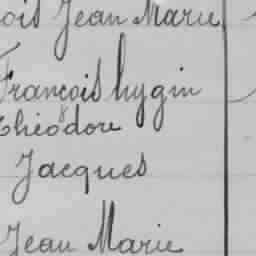 ois Jean Marie
François hygin
Théodore
Jacques
Jean Marie